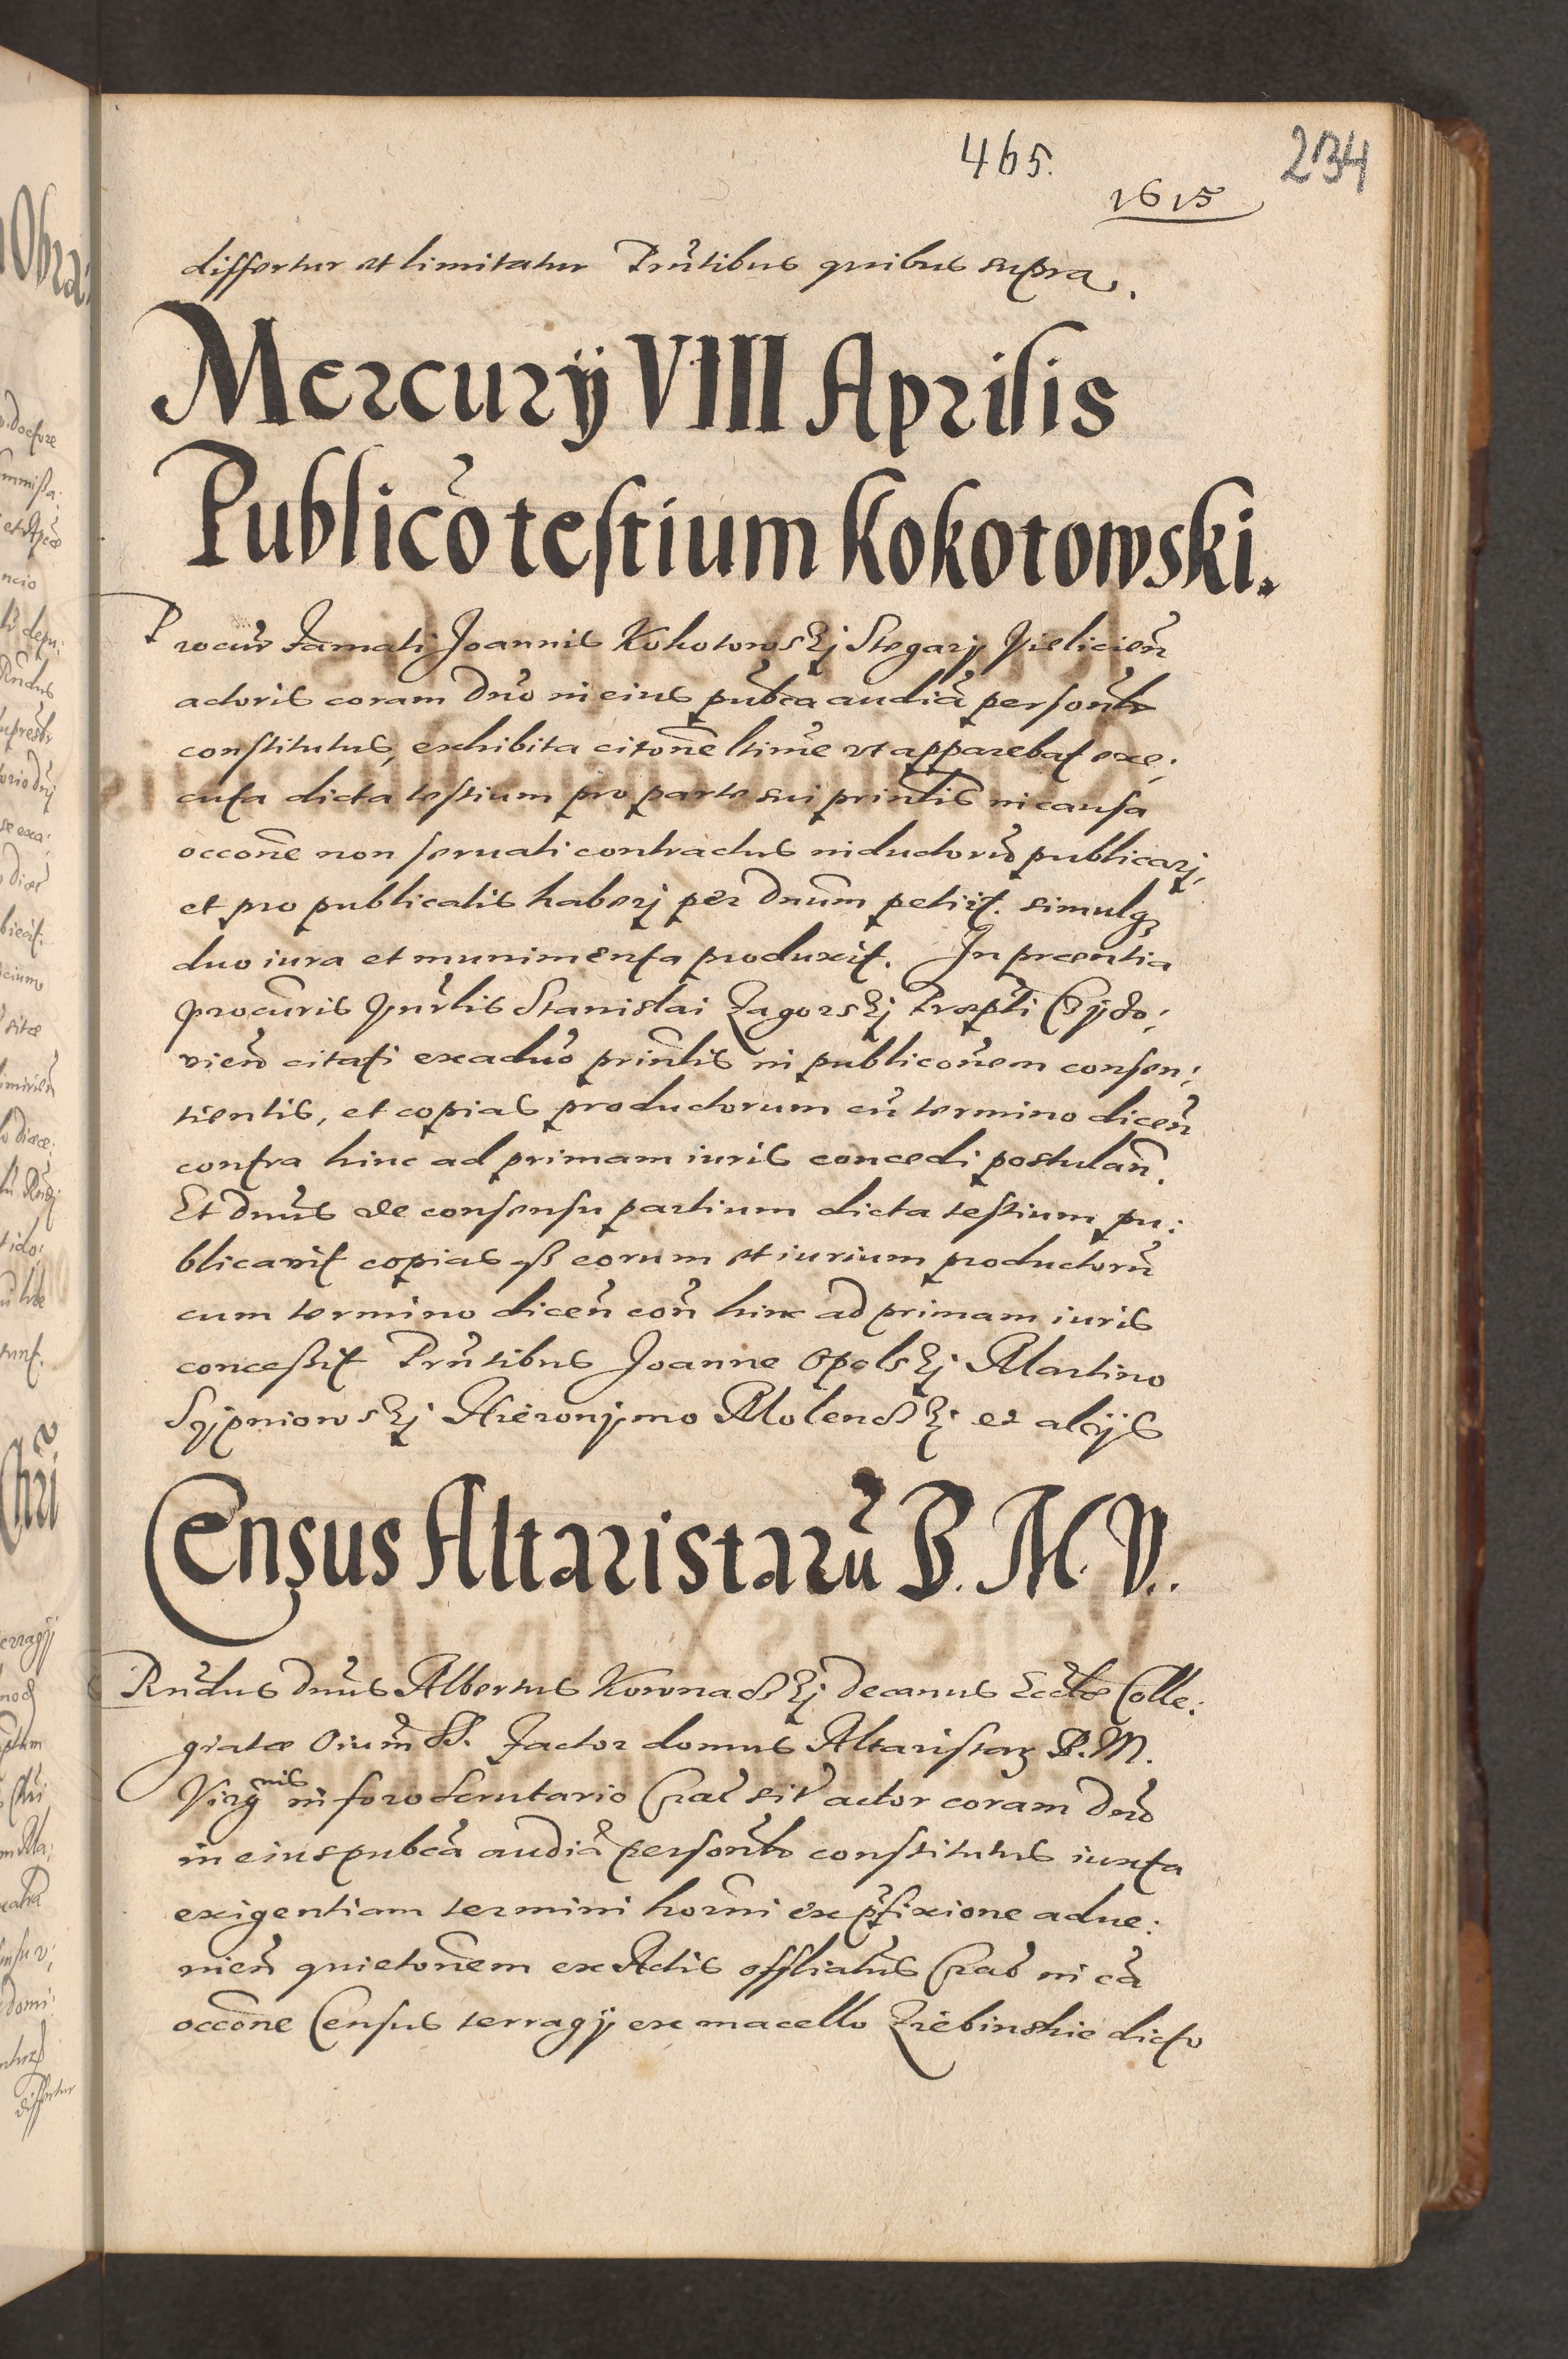 465.
234
1615
differtur et limitatur Pñtibus quibus supra.
Mercurÿ VIII Aprilis
Publicõ testium Kokotowski.
Procur̃ famati Joannis Kokotowskj Stegarÿ Vielicieñ
actoris coram Dnõ in eius pub̃ca audiã personlr̃
constitutus, exhibita citoñe ltime vt apparebat exe:
cuta dicta testium pro parte sui prinl̃is in causa
occoñe non seruati contractus inductorũ publicarj,
et pro publicatis haberj per Dnum̃ petiit. simulq
duo iura et munimenta produxit. In prẽntia
procur̃is Stanislai Zagorskj
vieñ citati ex aduõ prinl̃is in publicoñem consen:
tientis, et copias productorum cũ termino diceñ
contra hinc ad primam iuris concedi postulañ.
Et Dnus̃ de consensu partium dicta testium pu:
blicavit copias qß eorum et iurium productorũ
cum termino diceñ coñ hinc ad primam iuris
concessit Pñtibus Joanne Opelskj Martino
Sÿpniowskj Hieronÿmo Molenskj et alÿs
Census Altaristarũ B. M. V.
Rnd̃us Dnus̃ Albertus Koronaskj Decanus Eccl̃æ Colle:
giatæ Oium̃ SS. Factor domus Altaristarꝫ B. M.
Virg̃nis in foro scrutario Crac̃ sit̃ actor coram Dnõ
in eius pubcã audiã personlr̃ constitutus iuxta
exigentiam termini horñi ex p̃fixione adue:
nieñ quietoñem ex Actis offlialis̃ Crac̃ in cã
occoñe Census terragÿ ex macello Zrebinskie dicto